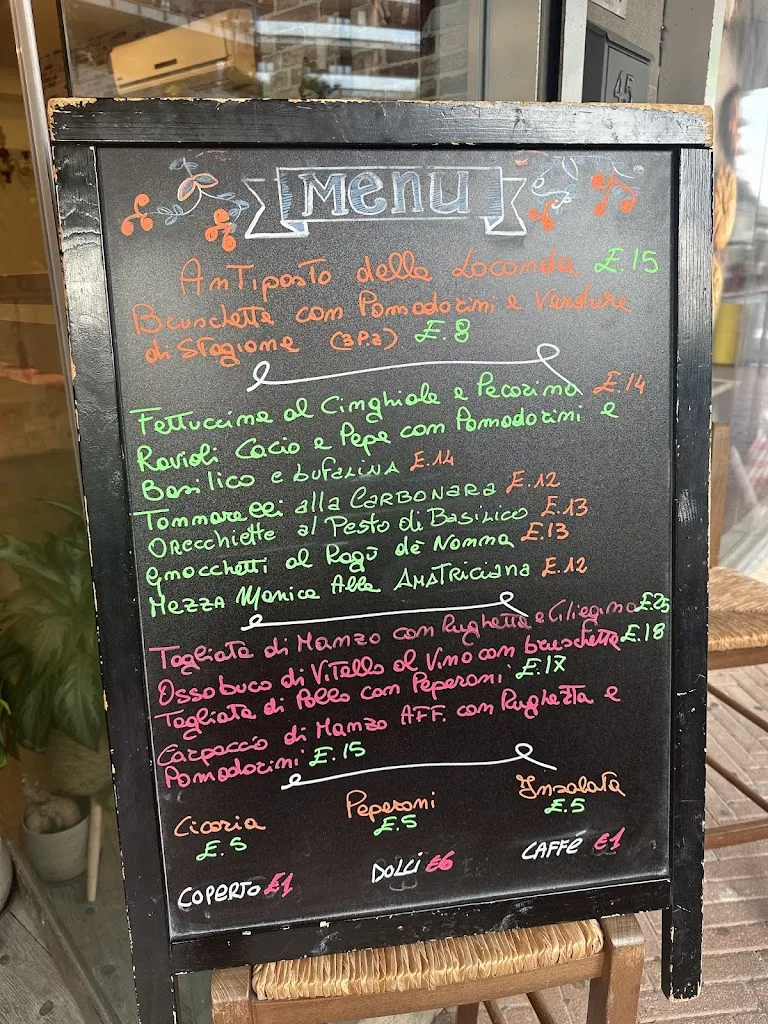 45
MENU
Antipasto della Locanda E.15
Bruschette con Pomodorini e Verdure
di Stagione (3Pz) E.8
Fettuccine al Cinghiale e Pecorino E.14
Ravioli Cacio e Pepe con Pomodorini e
Basilico e bufalina E.14
Tonnarelli alla Carbonara E.12
Orecchiette al Pesto di Basilico E.13
Gnocchetti al Ragù dè Nonna E.13
Mezza Manica Alla Amatriciana E.12
Tagliata di Manzo con Rughetta e Ciliegino E.25
Ossobuco di Vitello al Vino con bruschetta E.18
Tagliata di Pollo con Peperoni E.17
Carpaccio di Manzo AFF. con Rughetta e
Pomodorini E.15
Cicoria Peperoni Insalata
E.5 E.5 E.5
COPERTO €1 DOLCI €6 CAFFÉ €1